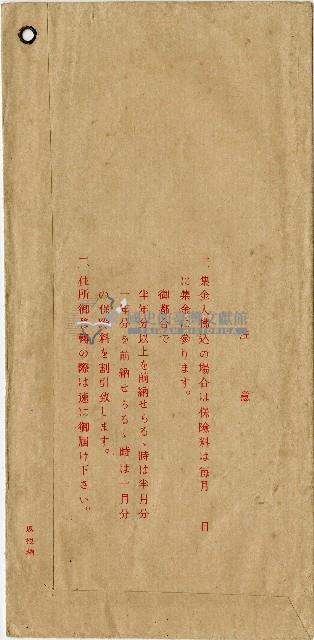 注意
一、集金人拂込の場合は保險料は毎月　日
に集金に參ります。
御都合で
半年分以上を前納せらるゝ時は半月分
一年分を前納せらるゝ時は一月分
の保險料を割引致します。
一、住所御移轉の際は速に御届け下さい。
國史館臺灣文獻館
TAIWAN HISTORICA